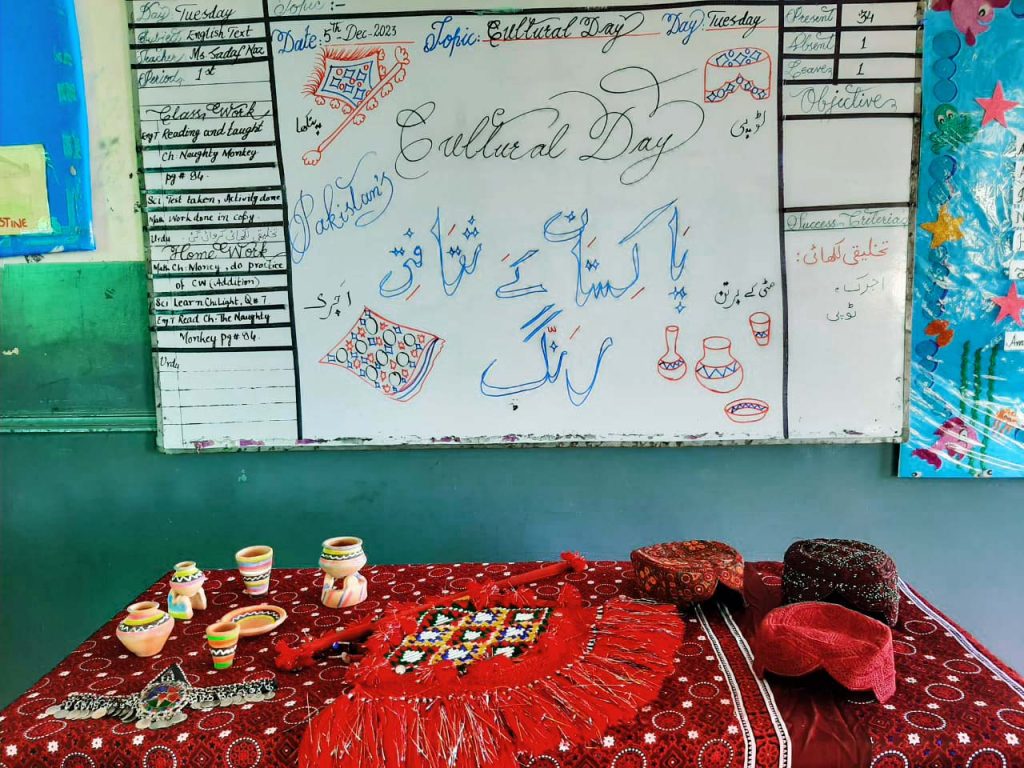 Day, Tuesday
Subject, English Text
Teacher, Ms. Sadaf Naz
Period, 1st
Class Work
Eng T Reading and taught
Ch: Naughty Monkey
pg # 94.
Sci Test taken, Activity done
Math Work done in copy.
Urdu
Home Work
Math Ch: Money, do practice
of CW (Addition)
Sci Learn Ch: Light, Q # 7
Eng T Read Ch: The Naughty
Monkey pg # 94.
Urdu
Topic :-
Date: 5th Dec-2023 Topic: Cultural Day Day: Tuesday
پنکھا
ٹوپی
Cultural Day
Pakistan's
پاکستان کے ثقافتی
رنگ
اجرک
مٹی کے برتن
Present 34
Absent 1
Leave 1
Objective
Success Criteria
تخلیقی لکھائی:
اجرک
ٹوپی
STINE